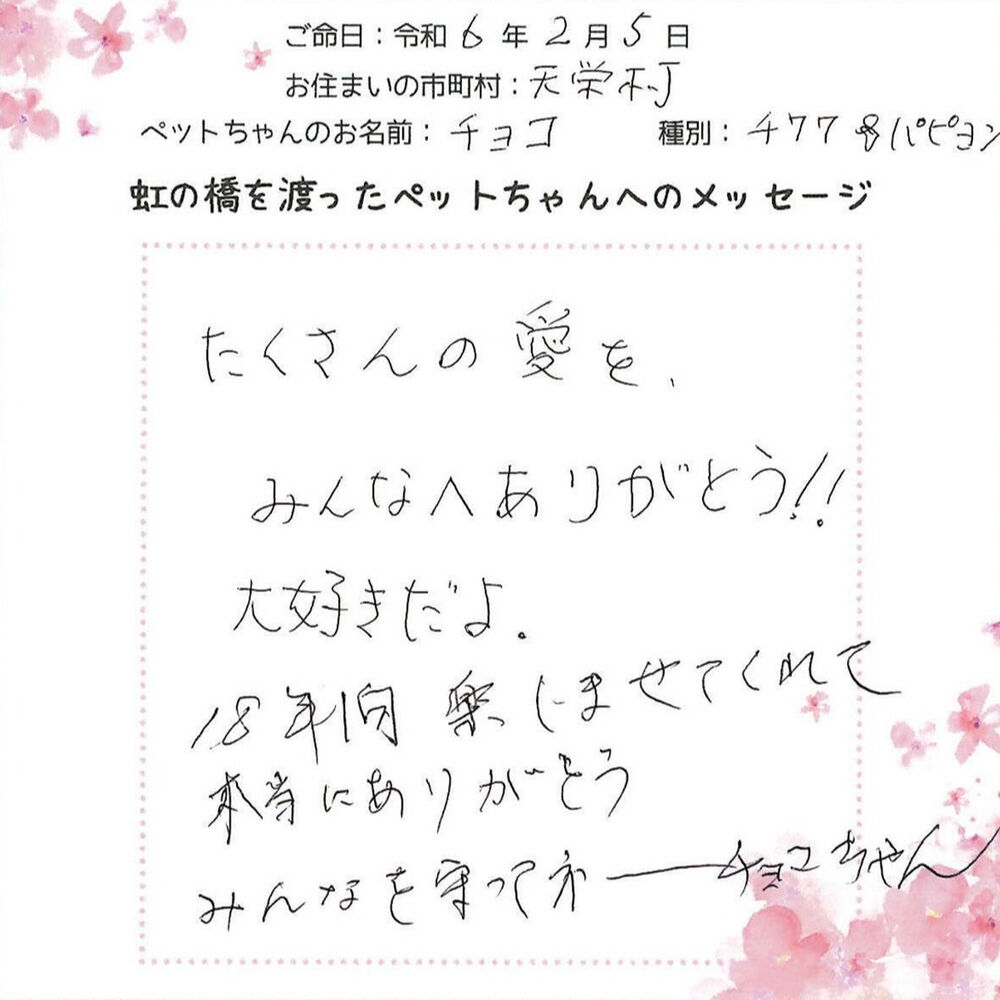 ご命日：令和6年2月5日
お住まいの市町村：天栄村
ペットちゃんのお名前：チョコ 種別：チワワ&パピヨン
虹の橋を渡ったペットちゃんへのメッセージ
たくさんの愛を、
みんなへありがとう!!
大好きだよ。
18年間楽しませてくれて
本当にありがとう
みんなを守ってネーチョコちゃん